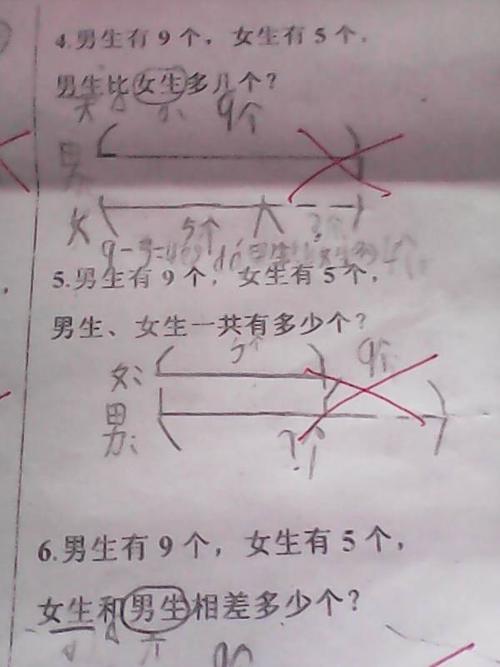 4.男生有9个，女生有5个，
男生比女生多几个？
大 小
9个
男
女
5个 ?个
5.男生有9个，女生有5个，
男生、女生一共有多少个？
5个
女: 9个
男:
?个
6.男生有9个，女生有5个，
女生和男生相差多少个？